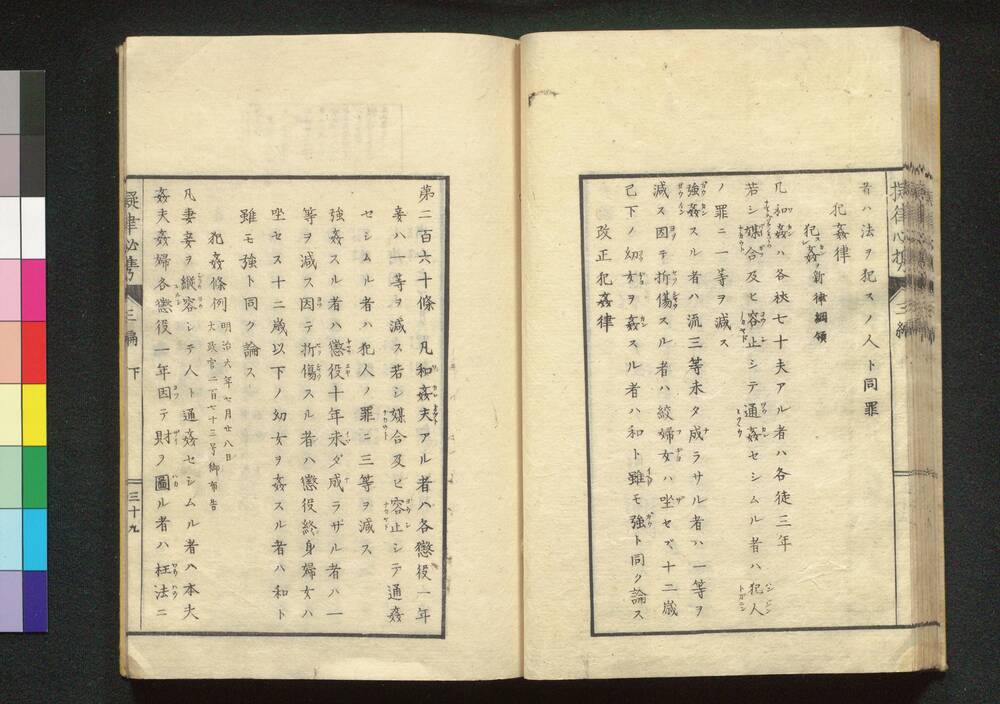 者ハ法ヲ犯スノ人ト同罪
犯姦律
犯姦 新律綱領
凡和姦ハ各杖七十夫アル者ハ各徒三年
若シ媒合及ヒ容止シテ通姦セシムル者ハ犯人
ノ罪ニ一等ヲ減ス
強姦スル者ハ流三等未タ成ラサル者ハ一等ヲ
減ス因テ折傷スル者ハ絞婦女ハ坐セズ十二歳
已下ノ幼女ヲ姦スル者ハ和ト雖モ強ト同ク論ス
改正犯姦律
三編
第二百六十條 凡和姦夫アル者ハ各懲役一年
妾ハ一等ヲ減ス若シ媒合及ヒ容止シテ通姦
セシムル者ハ犯人ノ罪ニ三等ヲ減ス
強姦スル者ハ懲役十年未ダ成ラザル者ハ一
等ヲ減ス因テ折傷スル者ハ懲役終身婦女ハ
坐セス十二歳以下ノ幼女ヲ姦スル者ハ和ト
雖モ強ト同ク論ス
犯姦條例 明治六年七月廿八日
太政官二百七十三号御布告
凡妻妾ヲ縱容シテ人ト通姦セシムル者ハ本夫
姦夫姦婦各懲役一年因テ財ヲ圖ル者ハ枉法ニ
三編 下 三十九